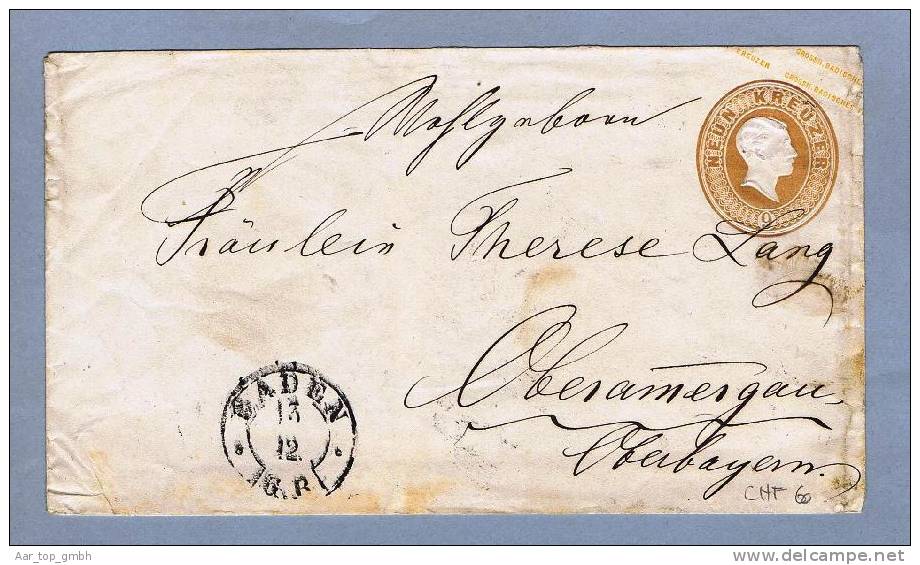 KREUZER GROSSH. BADISCHE
GROSSH. BADISCHE
NEUN KREUZER
9
Wohlgeboren
Fräulein Therese Lang
Oberammergau.
Oberbayern.
BADEN
13
12.
G.B.
CHF 60
Aar_top_gmbh
www.delcampe.net